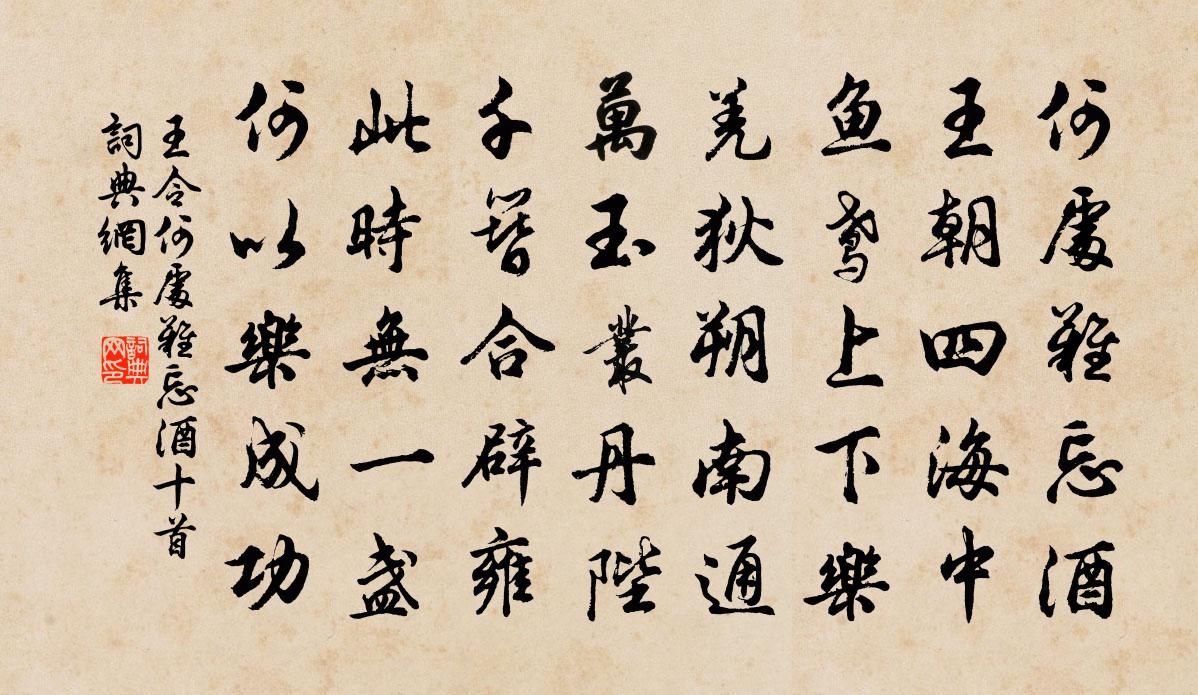 何處難忘酒
王朝四海中
魚鳶上下樂
羌狄朔南通
萬玉叢丹陛
千簪合辟雍
此時無一盞
何以樂成功
王令何處難忘酒十首
詞典網集
詞典
网印